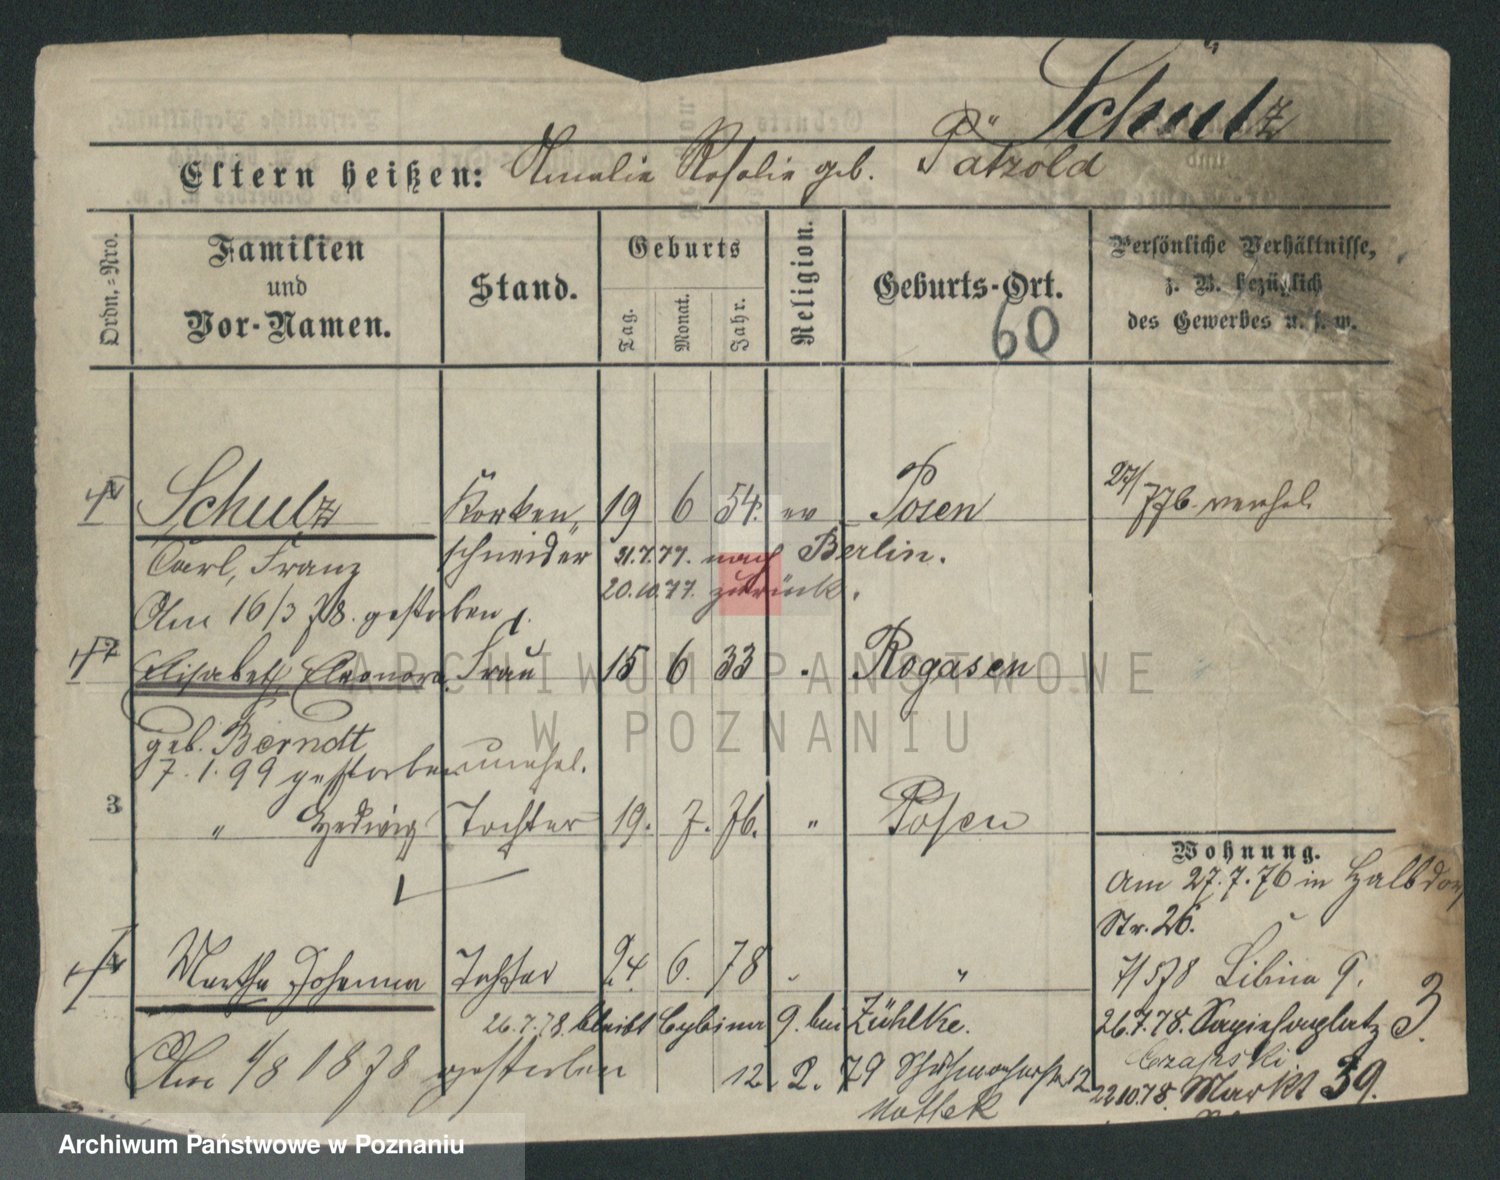 Schulz
Eltern heißen: Amalie Rosalie geb. Pätzold
Ordn.-Nro.
Familien und Vor-Namen.
Stand.
Geburts
Tag. Monat. Jahr.
Religion.
Geburts-Ort.
60
Persönliche Verhältnisse, z. B. bezüglich des Gewerbes u. s. w.
1 Schulz Korken„ 19 6 54. ev Posen 27/7 76. verhel.
Carl, Franz schneider 31.7.77. nach Berlin.
20.10.77. zurück.
Am 16/3 78. gestorben
2 Elisabeth, Eleonora, Frau 15 6 33 Rogasen
geb. Berndt
7.1.99 gestorben unehel.
3 " Hedwig Tochter 19. 7. 76. " Posen
Wohnung.
Am 27.7.76 in Halbdorf
Str. 26.
4 Martha Johanna Tochter 24. 6. 78 "
7/5 78 Libina 9.
26.7.78. bleibt Cybina 9. bei Zühlke.
26.7.78. Sapiehaplatz 3.
Czapski.
Am 4/8 1878 gestorben
12. 2. 79 Schuhmacherstr. 12
22.10.78. Markt 39.
ARCHIWUM PAŃSTWOWE
W POZNANIU
Archiwum Państwowe w Poznaniu